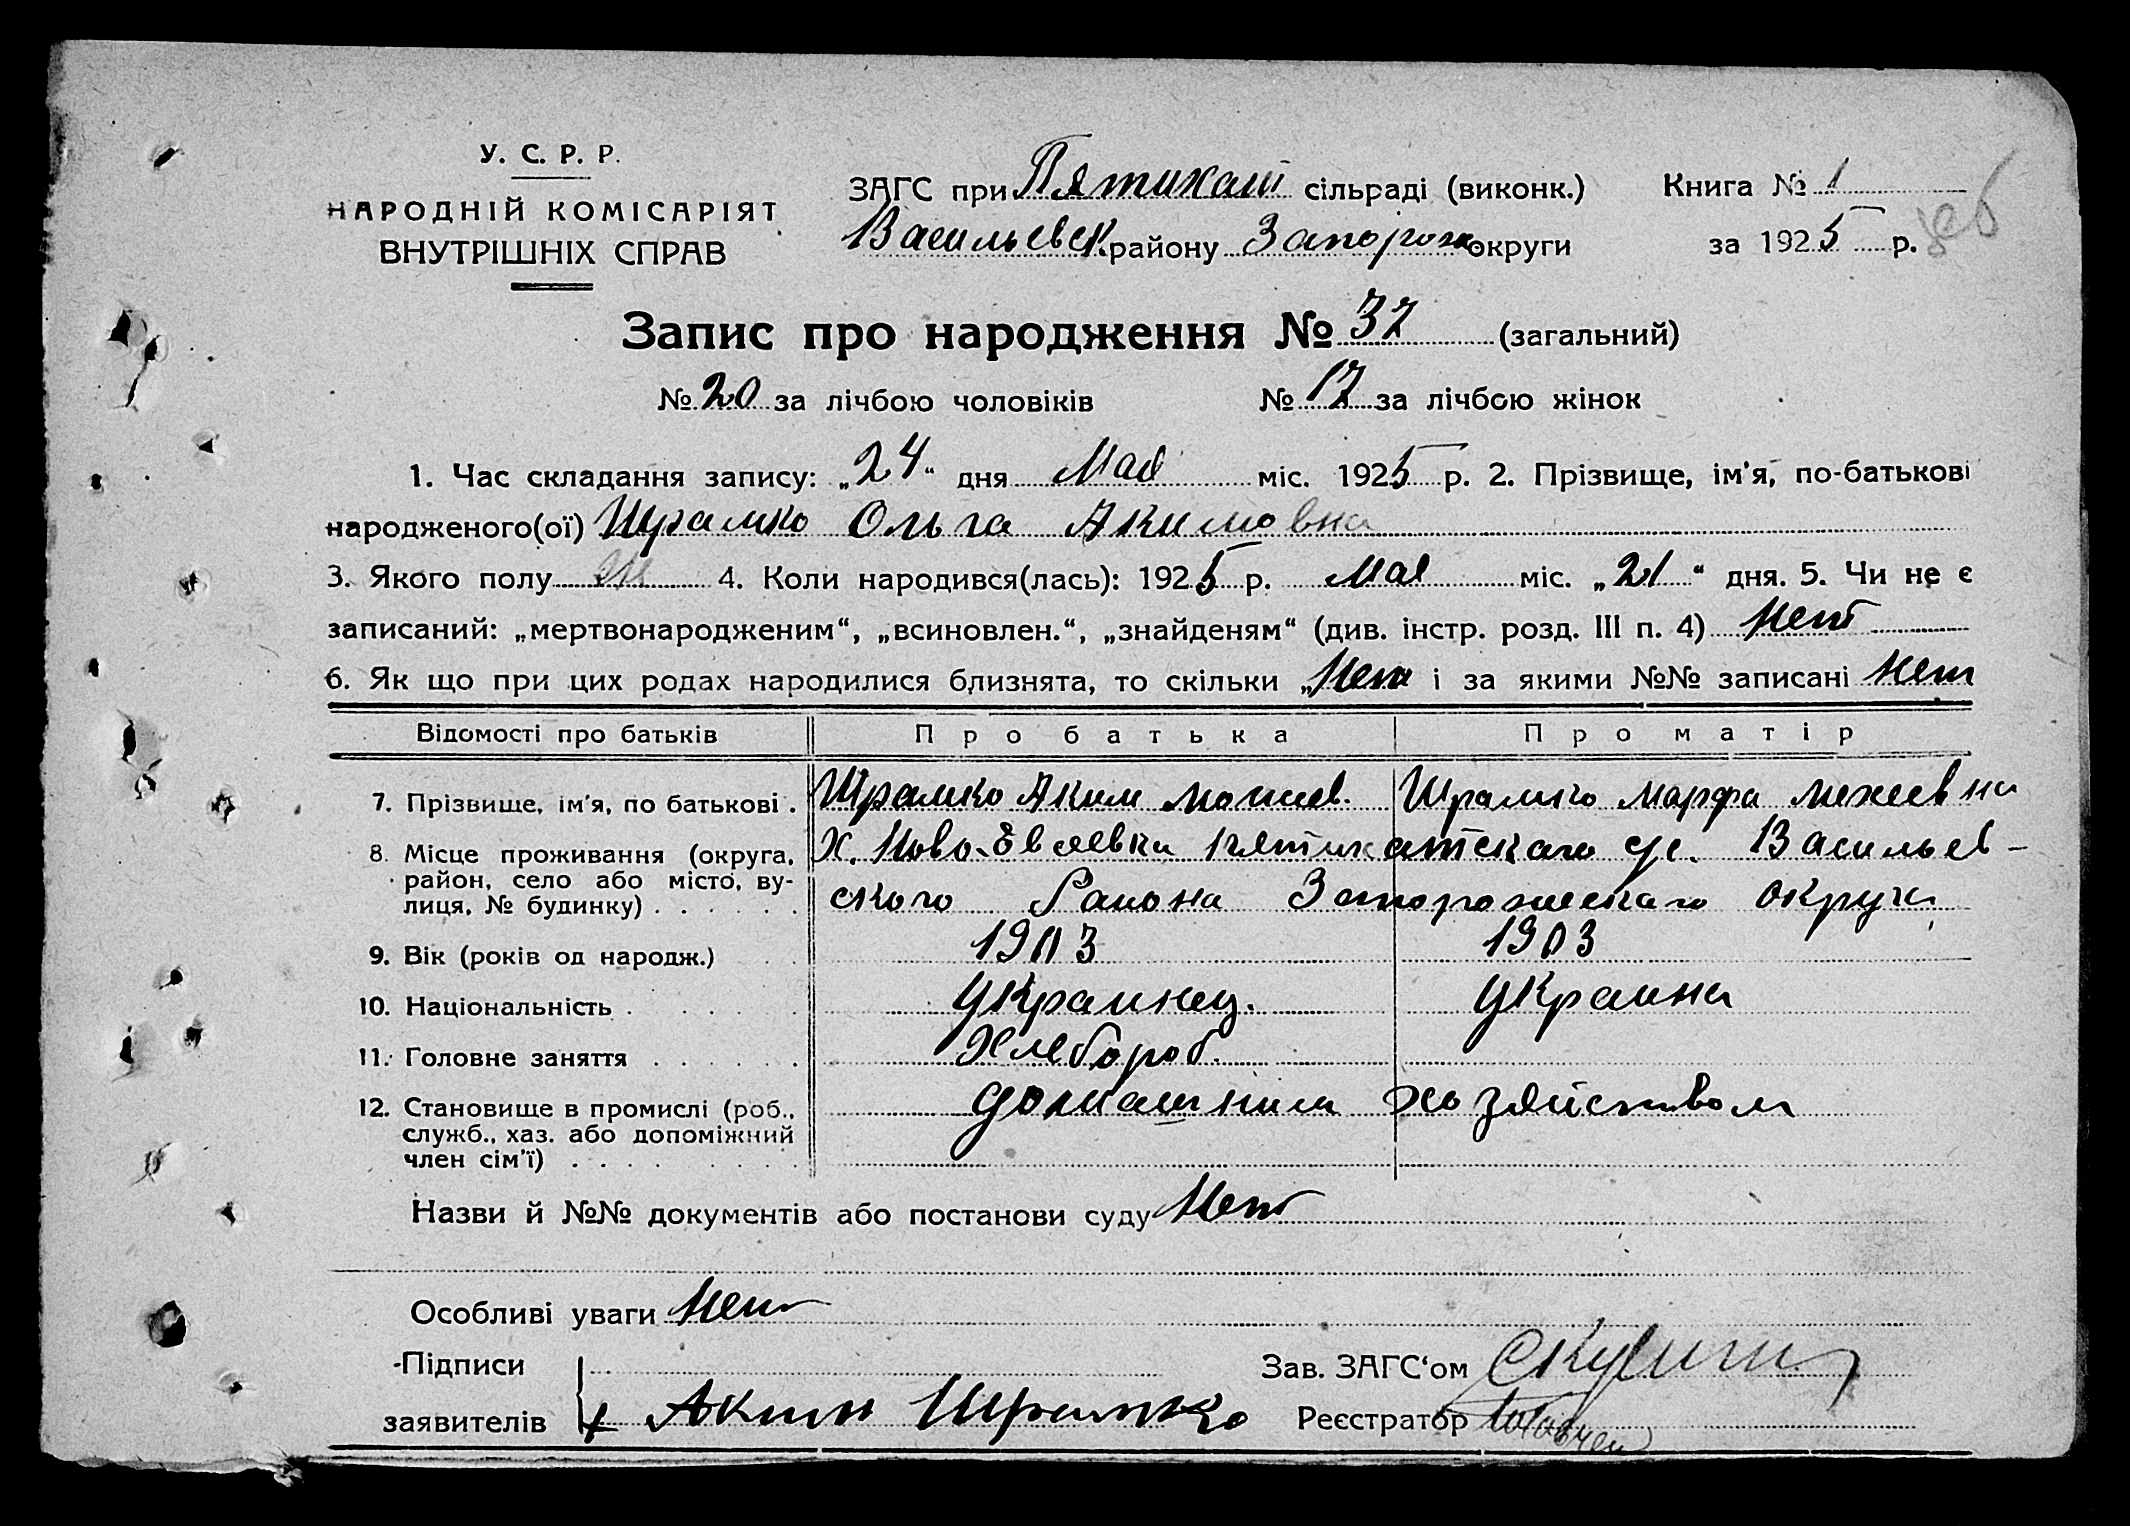 У. С. Р. Р.
НАРОДНІЙ КОМІСАРІЯТ
ВНУТРІШНІХ СПРАВ
ЗАГС при Пятихат сільраді (виконк.)
Васильевск. району Запорож округи
Книга № 1
за 1925 р.
Запис про народження № 37 (загальний)
№ 20 за лічбою чоловіків № 17 за лічбою жінок
1. Час складання запису: „24“ дня Мая міс. 1925 р. 2. Прізвище, ім'я, по-батькові
народженого(ої) Шрамко Ольга Акимовна
3. Якого полу ж 4. Коли народився(лась): 1925 р. Мая міс. „21“ дня. 5. Чи не є
записаний: „мертвонародженим“, „всиновлен.“, „знайденям“ (див. інстр. розд. III п. 4) Нет
6. Як що при цих родах народилися близнята, то скільки „Нет і за якими №№ записані Нет
Відомості про батьків Про батька Про матір
7. Прізвище, ім'я, по батькові . Шрамко Аким Шрамко Марфа
8. Місце проживання (округа, район, село або місто, вулиця, № будинку) . . . . . . Х. Ново- Пятихатского с. Васильев-
ского Района Запорожскаго округи
9. Вік (років од народж.) . . 1903 1903
10. Національність . . . . . . Украинец. Украинка
11. Головне заняття . . . . . . Хлебороб.
12. Становище в промислі (роб., служб., хаз. або допоміжний член сім'ї) . . . . . . . . домашним хозяйством
Назви й №№ документів або постанови суду Нет
Особливі уваги Нет
Підписи
заявителів Аким Шрамко
Зав. ЗАГС‘ом
Реєстратор